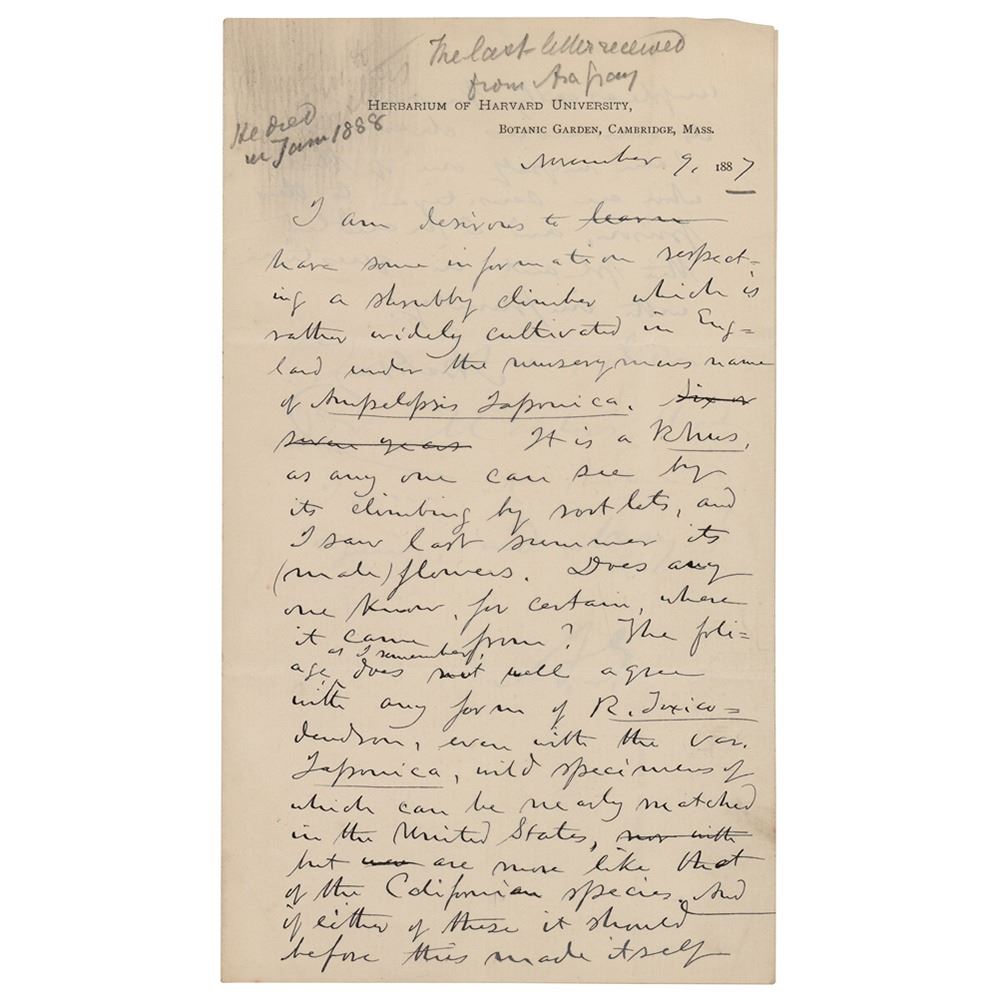 The last letter received
from Asa Gray
HERBARIUM OF HARVARD UNIVERSITY,
BOTANIC GARDEN, CAMBRIDGE, MASS.
He died
in Jany 1888
November 9, 1887
I am desirous to learn
have some information respect=
ing a shrubby climber which is
rather widely cultivated in Eng=
land under the nurserymens name
of Ampelopsis Japonica. Six or
seven years It is a Rhus,
as any one can see by
its climbing by rootlets, and
I saw last summer its
(male) flowers. Does any
one know, for certain, where
it came from? The foli=
as I remember,
age, does not well agree
with any form of R. Toxico=
dendron, even with the var.
Japonica, wild specimens of
which can be nearly matched
in the United States, nor with
but are more like that
of the Californian species. And
if either of these it should
before this made itself